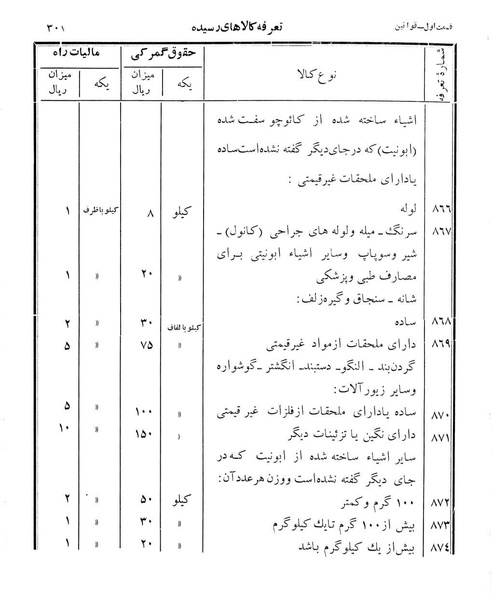 قسمت اول ـ قوانین تعرفه کالاهای رسیده ۳۰۱
شمارهٔ تعرفه نوع کالا حقوق گمرکی مالیات راه
یکه میزان ریال یکه میزان ریال
اشیاء ساخته شده از کائوچو سفت شده
(ابونیت) که درجای دیگر گفته نشده است ساده
یا دارای ملحقات غیرقیمتی :
۸۶۶ لوله کیلو ۸ کیلو باظرف ۱
۸۶۷ سرنگ ـ میله ولوله های جراحی (کانول) ـ
شیر وسوپاپ وسایر اشیاء ابونیتی برای
مصارف طبی وپزشکی » ۲۰ » ۱
شانه ـ سنجاق وگیره زلف:
۸۶۸ ساده کیلو با لفاف ۳۰ » ۲
۸۶۹ دارای ملحقات ازمواد غیرقیمتی » ۷۵ » ۵
گردن بند ـ النگو ـ دستبند ـ انگشتر ـ گوشواره
وسایر زیورآلات:
۸۷۰ ساده یادارای ملحقات ازفلزات غیر قیمتی » ۱۰۰ » ۵
۸۷۱ دارای نگین یا تزئینات دیگر » ۱۵۰ » ۱۰
سایر اشیاء ساخته شده از ابونیت که در
جای دیگر گفته نشده است ووزن هرعدد آن:
۸۷۲ ۱۰۰ گرم وکمتر کیلو ۵۰ » ۲
۸۷۳ بیش از ۱۰۰ گرم تا یك کیلوگرم » ۳۰ » ۱
۸۷۴ بیش از یك کیلوگرم باشد » ۲۰ » ۱